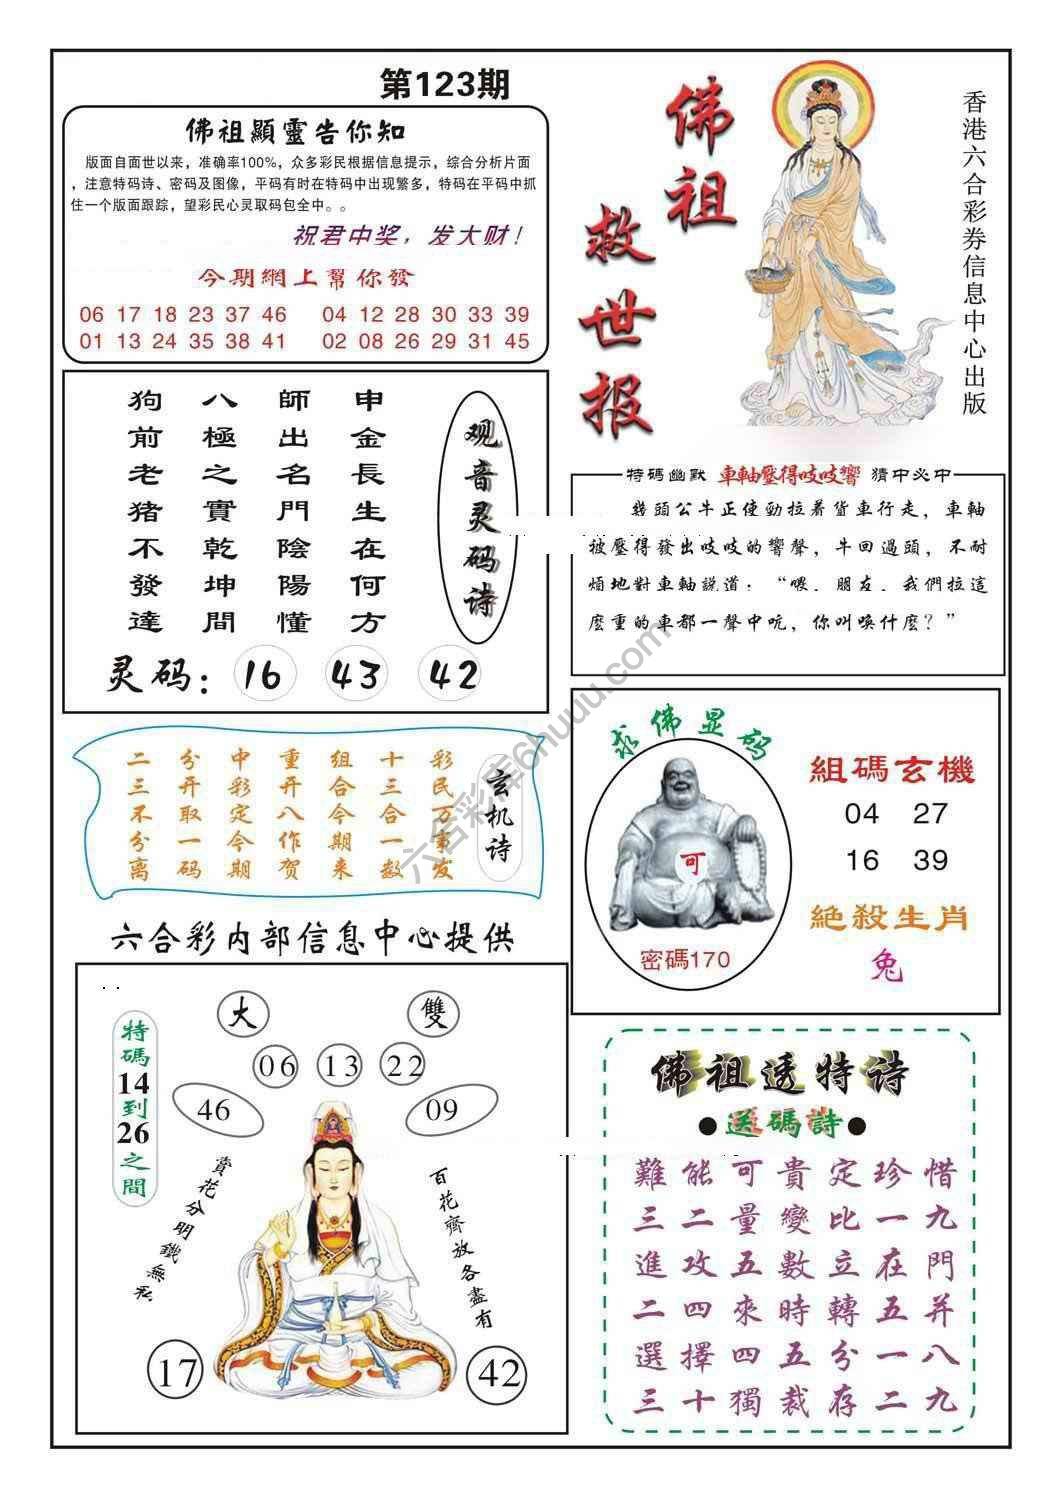 第123期
佛祖顯靈告你知
版面自面世以来，准确率100%，众多彩民根据信息提示，综合分析片面
，注意特码诗、密码及图像，平码有时在特码中出现繁多，特码在平码中抓
住一个版面跟踪，望彩民心灵取码包全中。。
祝君中奖，发大财！
今期網上幫你發
06 17 18 23 37 46 04 12 28 30 33 39
01 13 24 35 38 41 02 08 26 29 31 45
佛祖
救世报
香港六合彩券信息中心出版
观音灵码诗
申金長生在何方
師出名門陰陽懂
八極之實乾坤間
狗前老猪不發達
灵码：16 43 42
特碼幽默 車軸壓得吱吱響 猜中必中
幾頭公牛正使勁拉着貨車行走，車軸
被壓得發出吱吱的響聲，牛回過頭，不耐
煩地對車軸説道：“喂，朋友，我們拉這
麽重的車都一聲中吭，你叫唤什麽？”
玄机诗
彩民万事发
十三合一数
组合今期来
重开八作贺
中彩定今期
分开取一码
二三不分离
求佛显码
可
密碼170
組碼玄機
04 27
16 39
絶殺生肖
兔
六合彩内部信息中心提供
特碼14到26之間
大 雙
06 13 22
46 09
賞花分明鐵無私
百花齊放各盡有
17 42
佛祖透特诗
●送碼詩●
難能可貴定珍惜
三二量變比一九
進攻五數立在門
二四來時轉五并
選擇四五分一八
三十獨裁存二九
六合彩库6huuu.com